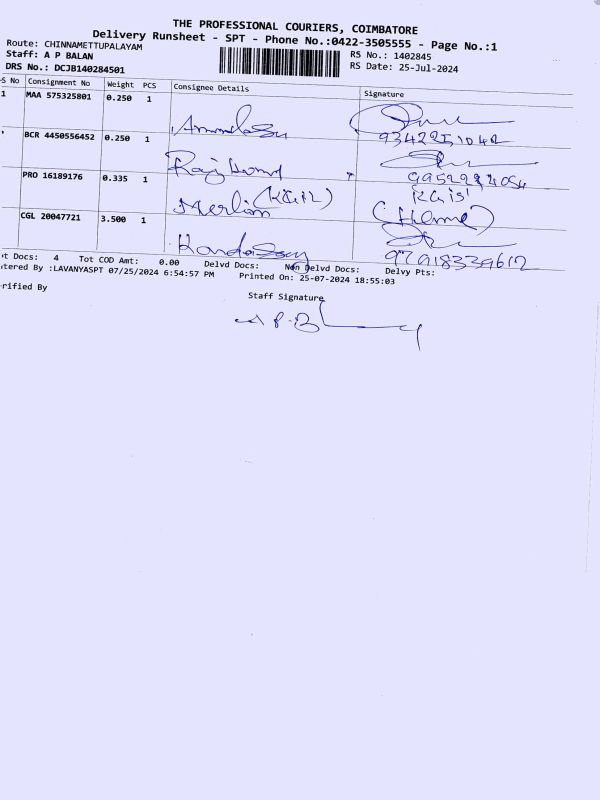 THE PROFESSIONAL COURIERS, COIMBATORE
Delivery Runsheet - SPT - Phone No.:0422-3505555 - Page No.:1
Route: CHINNAMETTUPALAYAM
RS No.: 1402845
Staff: A P BALAN
RS Date: 25-Jul-2024
DRS No.: DCJB140284501
S No Consignment No Weight PCS Consignee Details Signature
1 MAA 575325801 0.250 1
BCR 4450556452 0.250 1
PRO 16189176 0.335 1 Merlian (KGiR)
(Home)
CGL 20047721 3.500 1 KandaSamy
97918339612
t Docs: 4 Tot COD Amt: 0.00 Delvd Docs: Non Delvd Docs: Delvy Pts:
tered By :LAVANYASPT 07/25/2024 6:54:57 PM Printed On: 25-07-2024 18:55:03
rified By
Staff Signature
A P. B